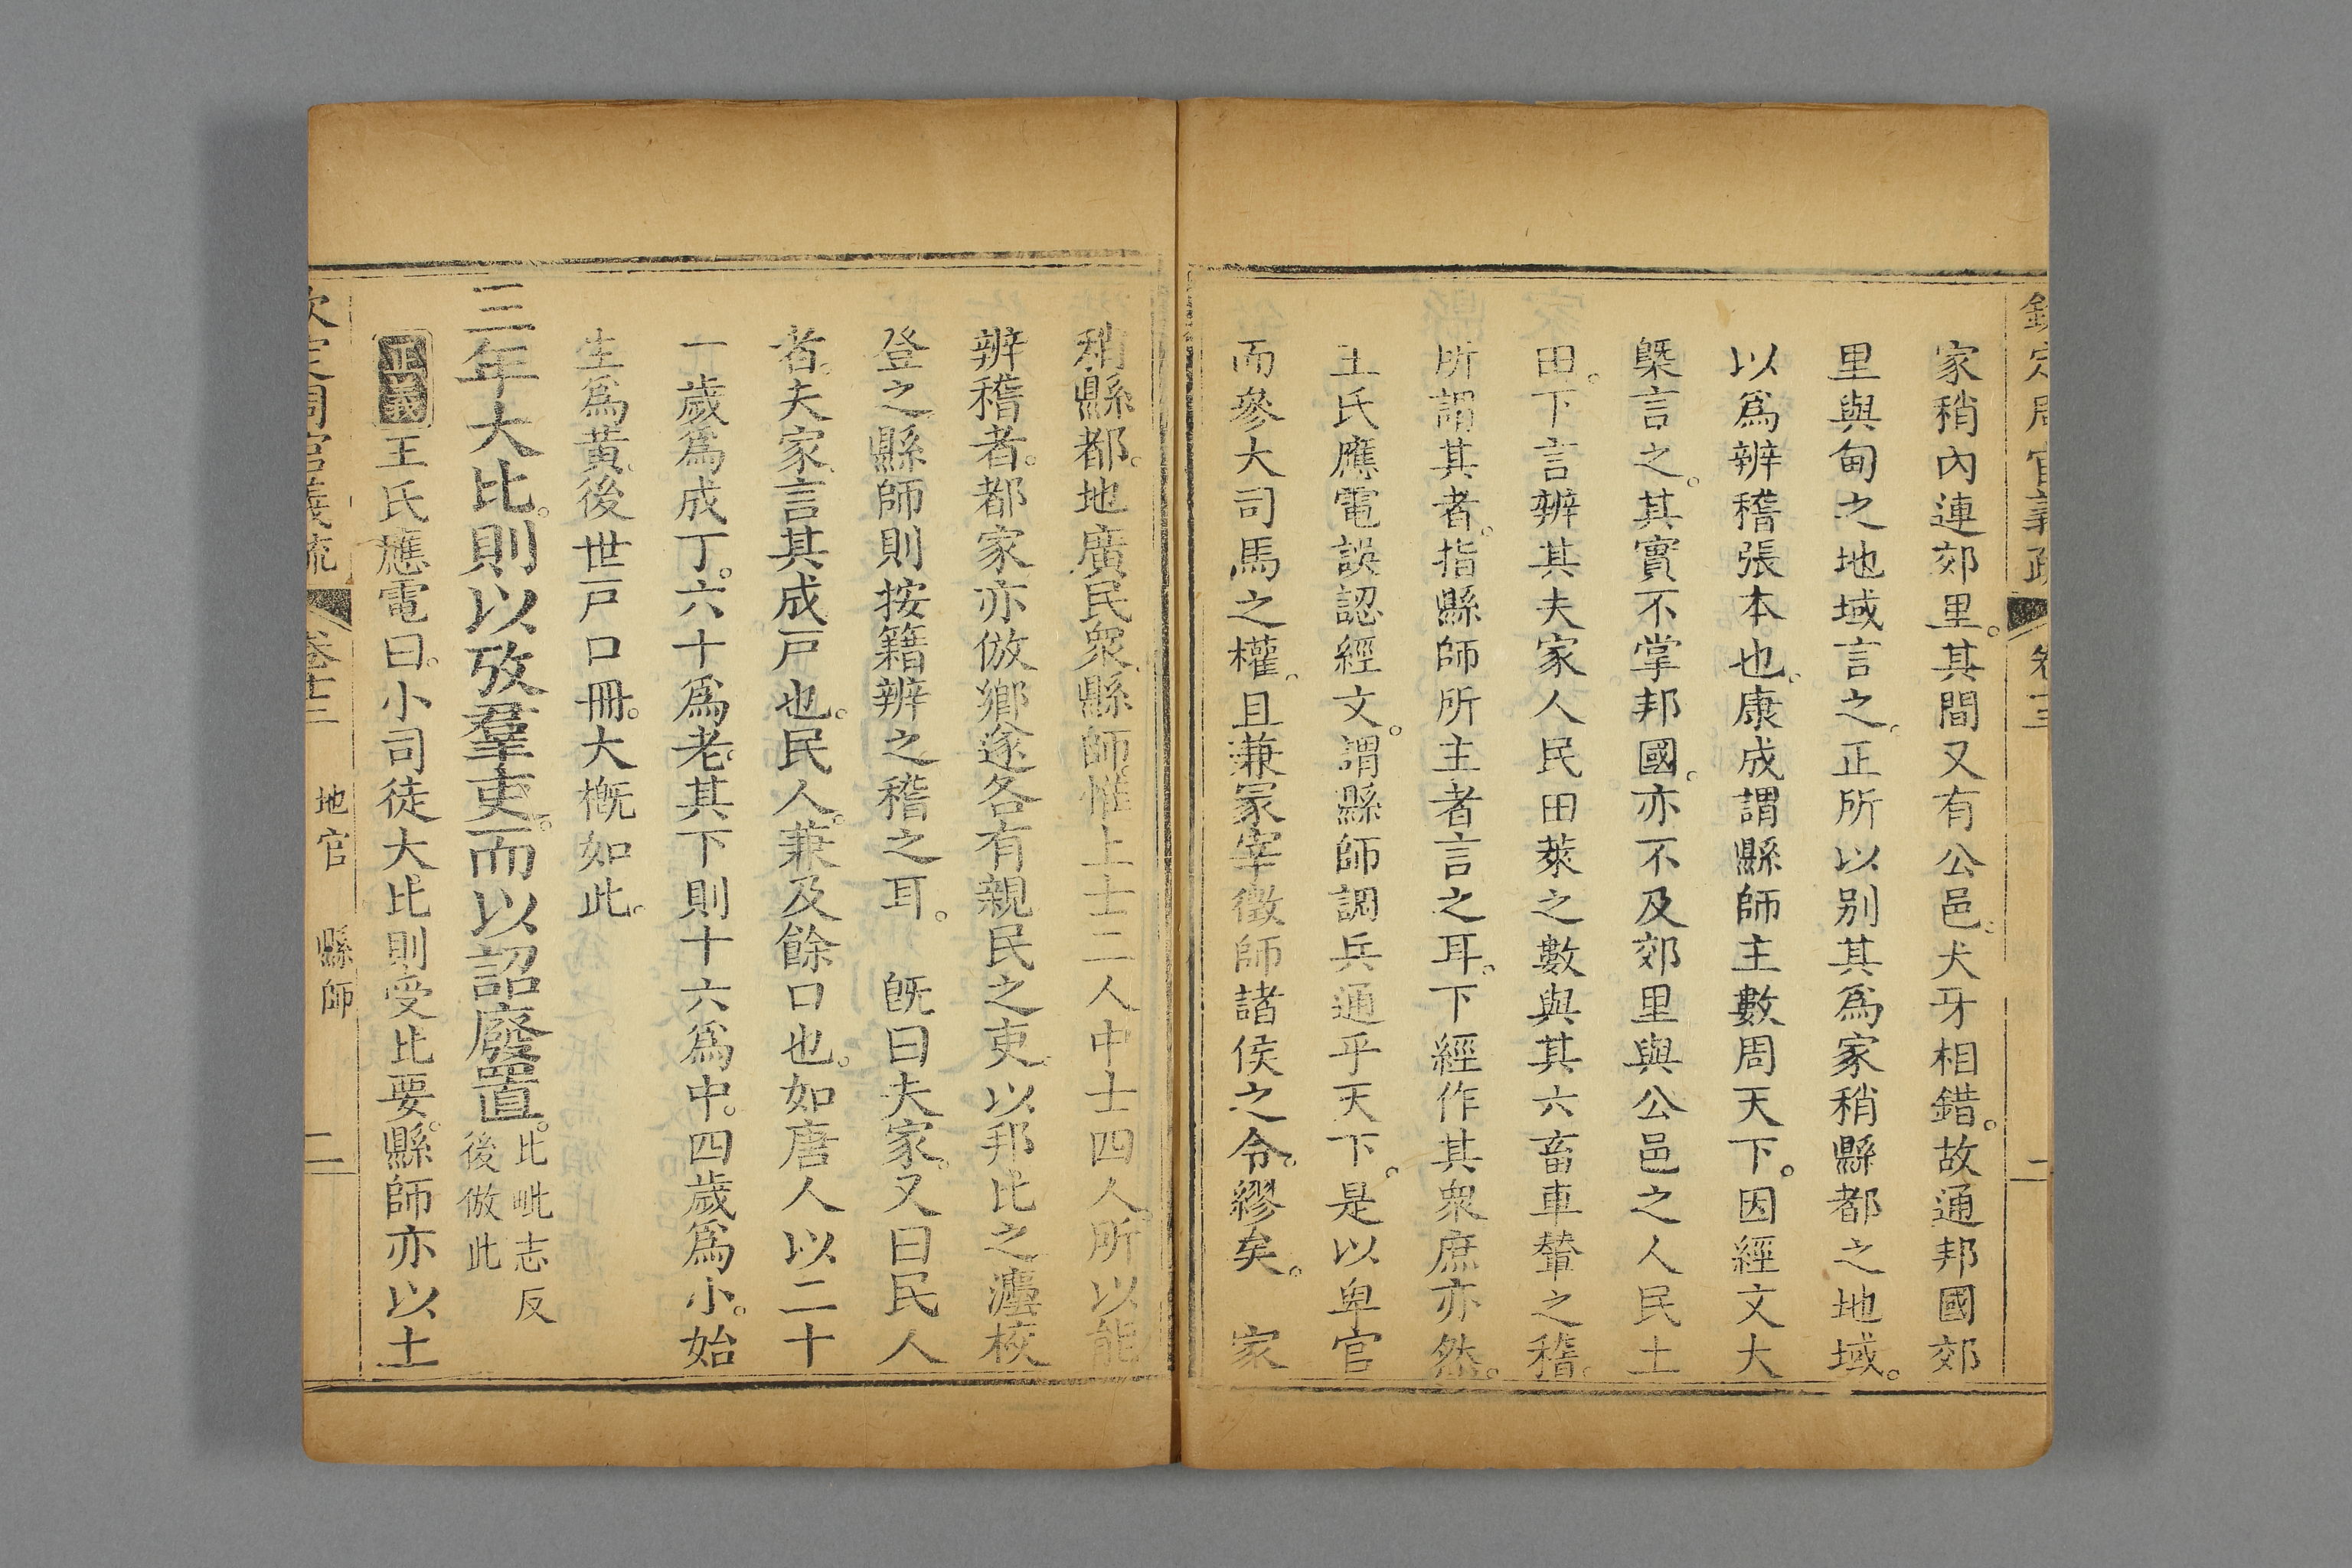 欽定周官義疏 卷十三 二
家稍內連郊里。其間又有公邑。犬牙相錯。故通邦國郊
里與甸之地域言之。正所以别其爲家稍縣都之地域。
以爲辨稽張本也。康成謂縣師主數周天下。因經文大
槩言之。其實不掌邦國。亦不及郊里與公邑之人民土
田。下言辨其夫家人民田萊之數與其六畜車輦之稽。
所謂其者。指縣師所主者言之耳。下經作其衆庶亦然。
王氏應電誤認經文。謂縣師調兵通乎天下。是以卑官
而參大司馬之權。且兼冢宰徵師諸侯之令。繆矣。 家
稍縣都。地廣民衆。縣師惟上士二人中士四人所以能
辨稽者。都家亦倣鄉遂各有親民之吏。以邦比之灋校
登之。縣師則按籍辨之稽之耳。 旣曰夫家。又曰民人
者。夫家。言其成戸也。民人。兼及餘口也。如唐人以二十
一歲爲成丁。六十爲老。其下則十六爲中。四歲爲小。始
生爲黃。後世戸口冊。大槪如此。
三年大比。則以攷羣吏。而以詔廢置。比毗志反
後倣此
正義 王氏應電曰。小司徒大比則受比要。縣師亦以土
欽定周官義疏 卷十三 地官 縣師 二